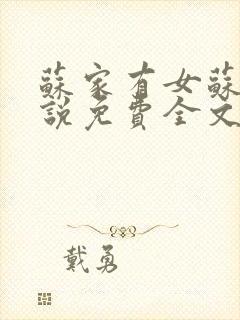 蘇家有女蘇
說免費全文
戴勇